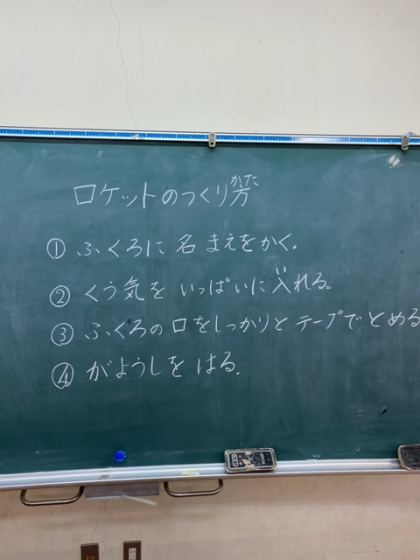 ロケットのつくり方
① ふくろに名まえをかく.
② くう気をいっぱいに入れる。
③ ふくろの口をしっかりとテープでとめる
④ がようしをはる.